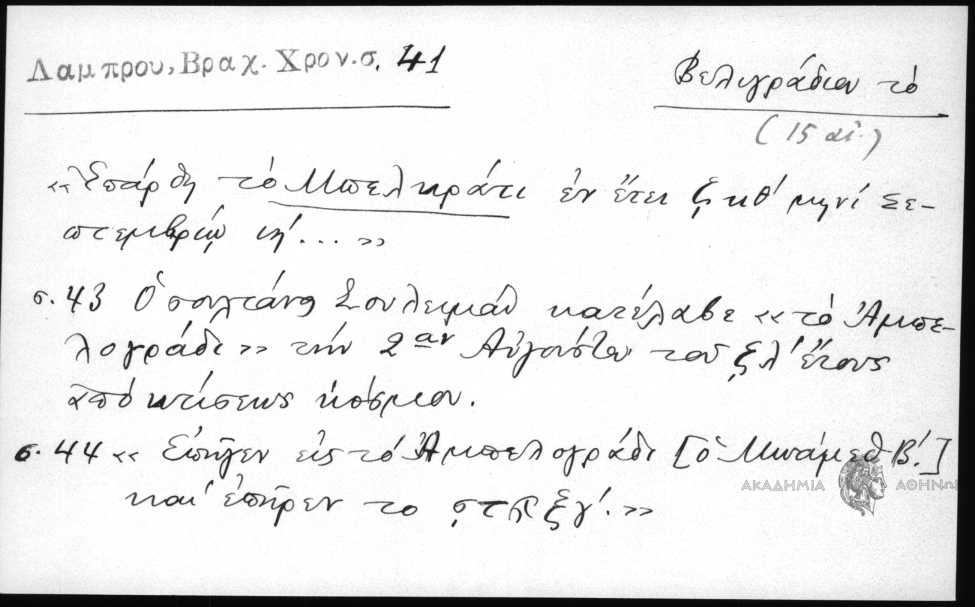 Λαμπρου, Βραχ. Χρον. σ. 41
Βελιγράδιον τὸ
(15 αἰ.)
«Ἐπάρθη τὸ Μπελκράτι ἐν ἔτει ζκθ' μηνὶ Σε-
πτεμβρίῳ ιη'... »
σ. 43 Ὁ σουλτάνος Σουλεϊμὰν κατέλαβε «τὸ Ἀμπε-
λογράδι» τὴν 2αν Αὐγούστου τοῦ ζλ' ἔτους
ἀπὸ κτίσεως κόσμου.
σ. 44 « Ἐπῆγεν εἰς τὸ Ἀμπελογράδι [ὁ Μωάμεθ Β'.]
καὶ ἐπῆρεν το ςτϡξγ'.»
ΑΚΑΔΗΜΙΑ ΑΘΗΝΩΝ